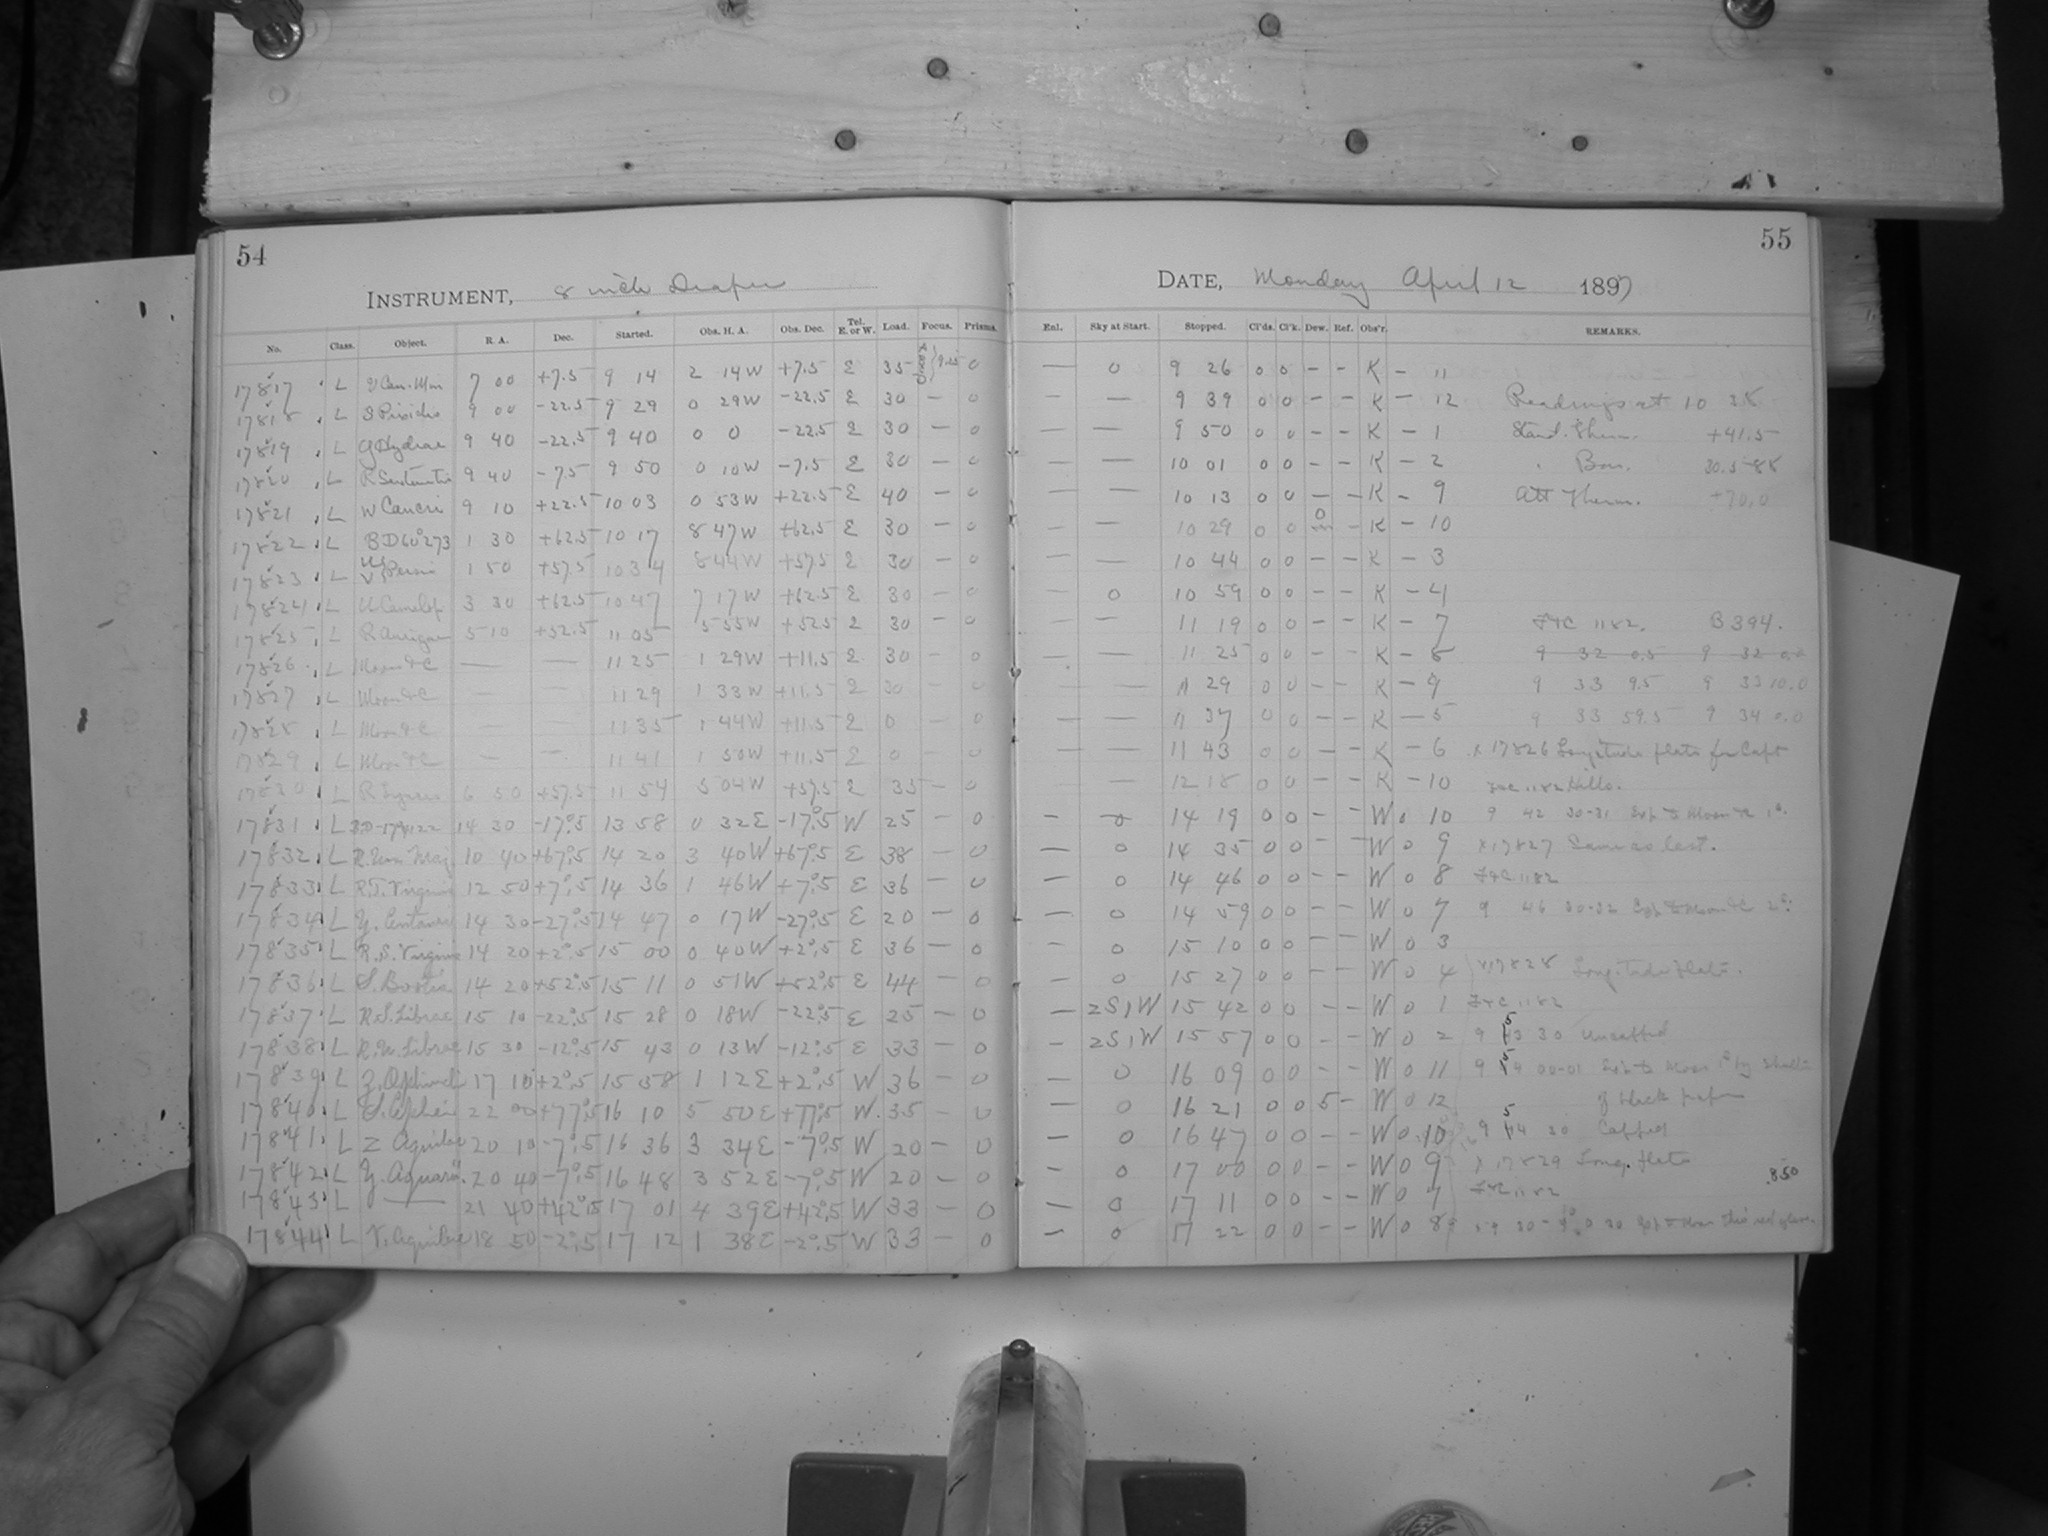 54
INSTRUMENT, 8 inch Draper
No. Class. Object. R. A. Dec. Started. Obs. H. A. Obs. Dec. Tel. E. or W. Load. Focus. Prisms.
17817 L V Can. Min 7 00 +7.5 9 14 2 14W +7.5 E 35 9.25 0
17818 L S Pixidis 9 00 -22.5 9 29 0 29W -22.5 E 30 - 0
17819 L Hydrae 9 40 -22.5 9 40 0 0 -22.5 E 30 - 0
17820 L R 9 40 -7.5 9 50 0 10W -7.5 E 30 - 0
17821 L W Cancri 9 10 +22.5 10 03 0 53W +22.5 E 40 - 0
17822 L BD60°273 1 30 +62.5 10 17 8 47W +62.5 E 30 - 0
17823 L Persei 1 50 +57.5 10 34 8 44W +57.5 E 30 - 0
17824 L U Camelop 3 30 +62.5 10 47 7 17W +62.5 E 30 - 0
17825 L R Aurigae 5 10 +52.5 11 05 5 55W +52.5 E 30 - 0
17826 L Moon & C — — 11 25 1 29W +11.5 E 30 - 0
17827 L Moon & C — — 11 29 1 33W +11.5 E 30 - 0
17828 L Moon & C — — 11 35 1 44W +11.5 E 0 - 0
17829 L Moon & C — — 11 41 1 50W +11.5 E 0 - 0
17830 L R Lyncis 6 50 +57.5 11 54 5 04W +57.5 E 35 - 0
17831 L 14 30 -17°.5 13 58 0 32E -17°.5 W 25 - 0
17832 L R. Urs. Maj. 10 40 +67°.5 14 20 3 40W +67°.5 E 38 - 0
17833 L R.T. Virginis 12 50 +7°.5 14 36 1 46W +7°.5 E 36 - 0
17834 L Y. Centauri 14 30 -27°.5 14 47 0 17W -27°.5 E 20 - 0
17835 L R.S. Virginis 14 20 +2°.5 15 00 0 40W +2°.5 E 36 - 0
17836 L S. Bootis 14 20 +52°.5 15 11 0 51W +52°.5 E 44 - 0
17837 L R.S. Librae 15 10 -22°.5 15 28 0 18W -22°.5 E 25 - 0
17838 L R.U. Librae 15 30 -12°.5 15 43 0 13W -12°.5 E 33 - 0
17839 L Z. Ophiuchi 17 10 +2°.5 15 58 1 12E +2°.5 W 36 - 0
17840 L S. Cephei 22 00 +77°.5 16 10 5 50E +77°.5 W 35 - 0
17841 L Z Aquilae 20 10 -7°.5 16 36 3 34E -7°.5 W 20 - 0
17842 L Y. Aquarii 20 40 -7°.5 16 48 3 52E -7°.5 W 20 - 0
17843 L — 21 40 +42°.5 17 01 4 39E +42°.5 W 33 - 0
17844 L V. Aquilae 18 50 -2°.5 17 12 1 38E -2°.5 W 33 - 0
55
DATE, Monday April 12 1897
Enl. Sky at Start. Stopped. Cl'ds. Cl'k. Dew. Ref. Obs'r. REMARKS.
— 0 9 26 0 0 - - K - 11
— — 9 39 0 0 - - K - 12 Readings at 10 38
— — 9 50 0 0 - - K - 1 Stand. Therm. +41.5
— — 10 01 0 0 - - K - 2 " Bar. 30.588
— — 10 13 0 0 - - K - 9 Att Therm. +70.0
— — 10 29 0 0 - K - 10
— — 10 44 0 0 - - K - 3
— 0 10 59 0 0 - - K - 4
— — 11 19 0 0 - - K - 7 F&C 1182. B 394.
— — 11 25 0 0 - - K - 8 9 32 0.5 9 32 0.0
— — 11 29 0 0 - - K - 9 9 33 9.5 9 33 10.0
— — 11 37 0 0 - - K - 5 9 33 59.5 9 34 0.0
— — 11 43 0 0 - - K - 6 x 17826 Longitude plate for Capt
— 12 18 0 0 - - K - 10 F&C 1182 Hills.
— 0 14 19 0 0 - - W 0 10 9 42 30-31 Exp. to Moon & 1s.
— 0 14 35 0 0 - - W 0 9 x 17827 Same as last.
— 0 14 46 0 0 - - W 0 8 F&C 1182
— 0 14 59 0 0 - - W 0 7 9 46 30-32 Exp to Moon & 2s.
— 0 15 10 0 0 - - W 0 3
— 0 15 27 0 0 - - W 0 4 x 17828 Longitude plate.
— 2S1W 15 42 0 0 - - W 0 1 F&C 1182
— 2S1W 15 57 0 0 - - W 0 2 9 53 30 uncapped
— 0 16 09 0 0 - - W 0 11 9 54 00-01 Exp. to Moon 1s by
— 0 16 21 0 0 5 - W 0 12 of black paper
— 0 16 47 0 0 - - W 0 10 9 54 30 Capped
— 0 17 00 0 0 - - W 0 9 x 17829 Long. plate 850
— 0 17 11 0 0 - - W 0 7 F&C 1182
— 0 17 22 0 0 - - W 0 8